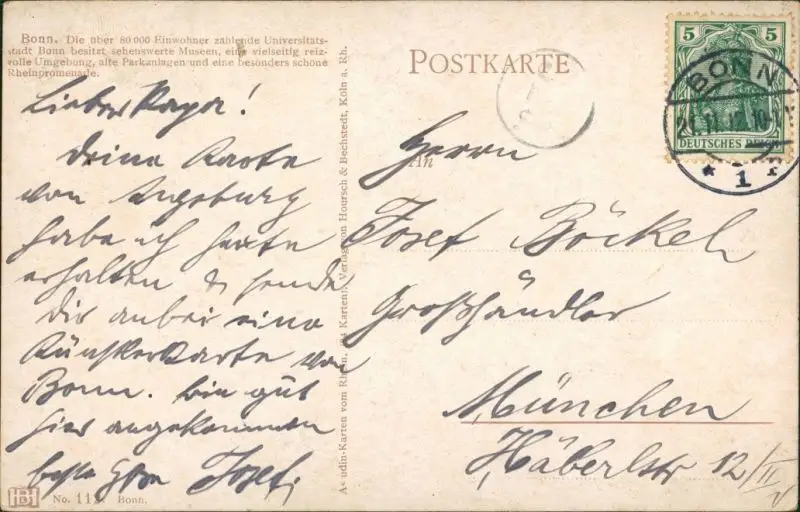 Bonn. Die über 80 000 Einwohner zählende Universitäts-
stadt Bonn besitzt sehenswerte Museen, eine vielseitig reiz-
volle Umgebung, alte Parkanlagen und eine besonders schöne
Rheinpromenade.
Lieber Papa!
Deine Karte
von Augsburg
habe ich heute
erhalten & sende
Dir anbei eine
Künstlerkarte von
Bonn. Bin gut
hier angekommen
beste Josef.
HB
No. 112. Bonn.
karten vom Rhein. Verlag von Hoursch & Bechstedt, Köln a. Rh.
POSTKARTE
An
Herrn
Josef Böckel
Großhändler
München
Häberlstr 12/II
5 5
DEUTSCHES REICH
BONN
* 1